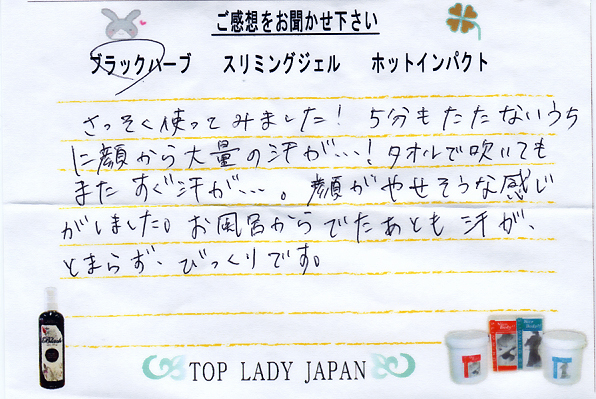 ご感想をお聞かせ下さい
ブラックハーブ スリミングジェル ホットインパクト
さっそく使ってみました! 5分もたたないうち
に顔から大量の汗が…! タオルで吹いても
またすぐ汗が…。顔がやせそうな感じ
がしました。お風呂からでたあとも汗が、
とまらず、びっくりです。
TOP LADY JAPAN